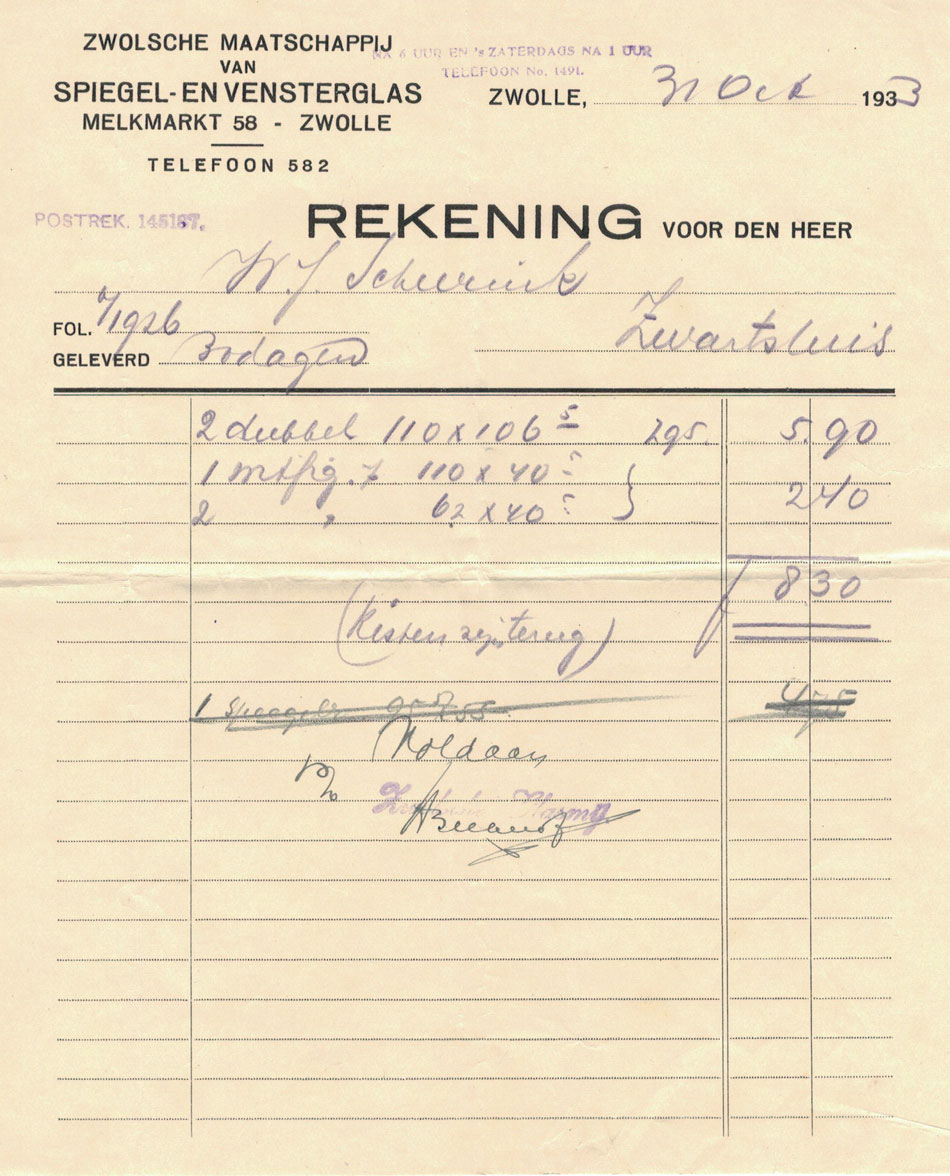 ZWOLSCHE MAATSCHAPPIJ
VAN
SPIEGEL- EN VENSTERGLAS
MELKMARKT 58 - ZWOLLE
TELEFOON 582
NA 6 UUR EN 's ZATERDAGS NA 1 UUR
TELEFOON No. 1491.
ZWOLLE, 31 Oct 1933
POSTREK. 145187.
REKENING VOOR DEN HEER
W. J Scheurink
FOL. 1926
Zwartsluis
GELEVERD
2 dubbel 110 x 106 5 295. 5.90
1 110 x 40 5
2 " 62 x 40 5 2 40
f 8 30
(Kisten zijn terug)
1 4 75
Voldaan